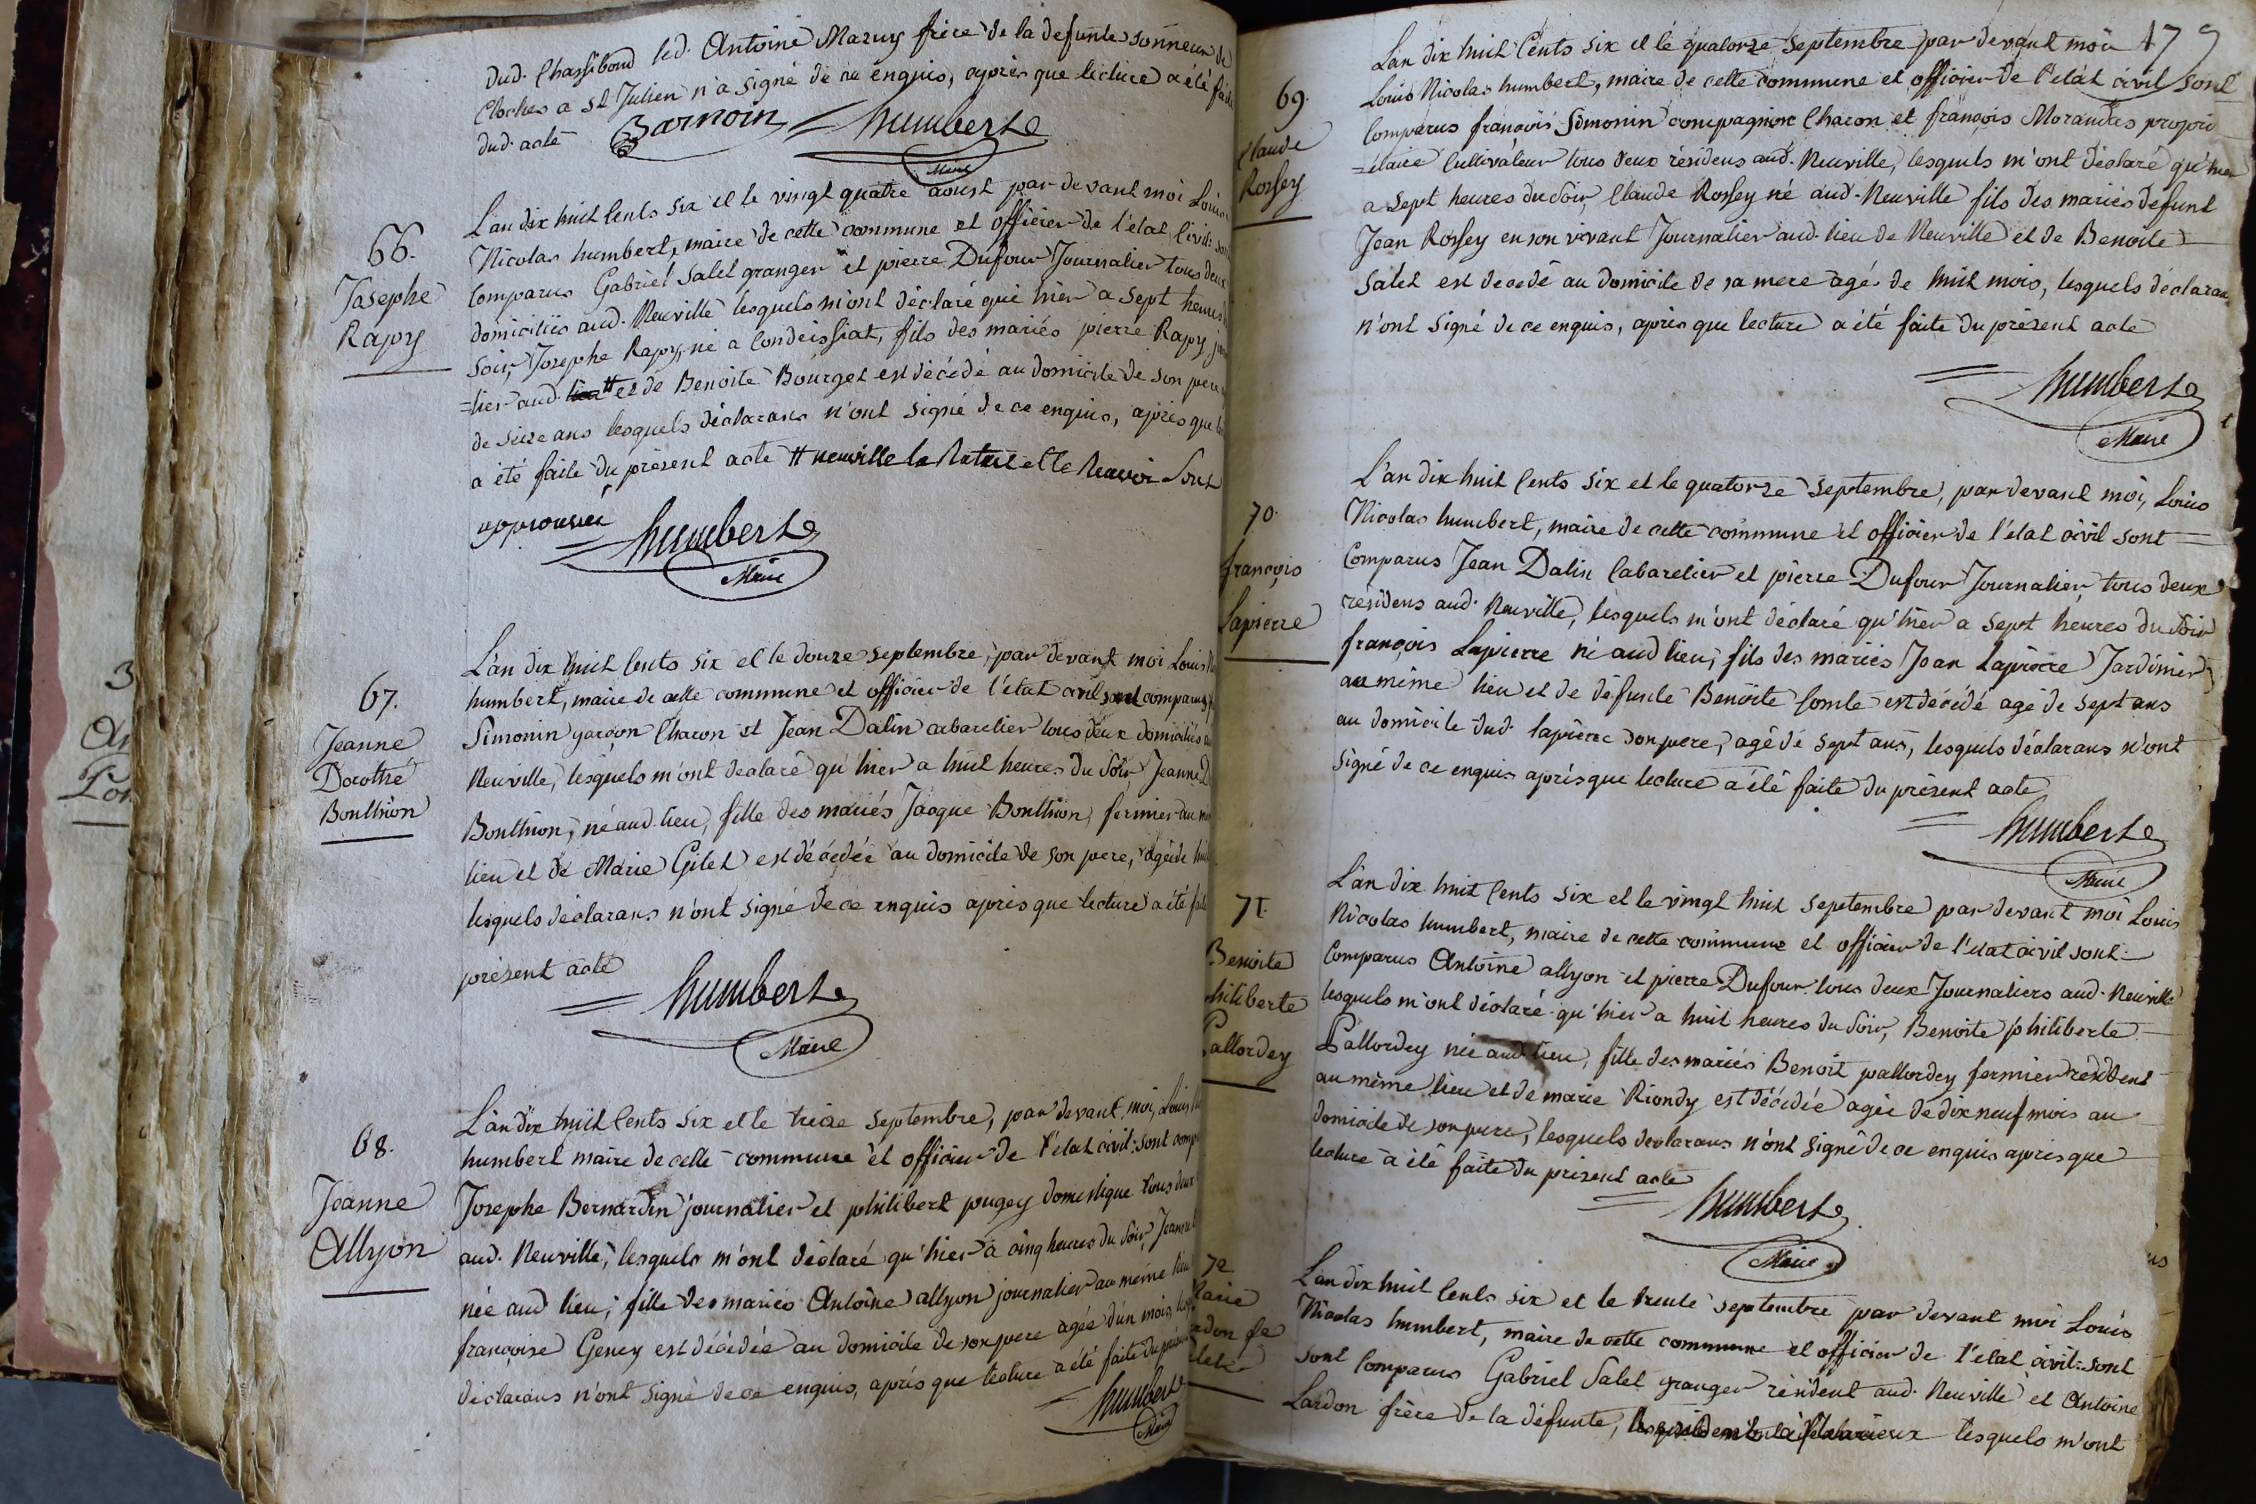 dud. Chassiboud led. Antoine Mazuy frère de la defunte sonneur de
Cloches a St Julien n'a signé de ce enquis, après que lecture a été faite
dud. acte
Barnoin humbert
Maire
66.
Josephe
Rapy
L'an dix huit Cents six et le vingt quatre aoust par devant moi Louis
Nicolas humbert, maire de cette commune et officier de l'état Civil: sont
Comparus Gabriel Salet granger et pierre Dufour Journalier tous deux
domiciliés aud. Neuville lesquels m'ont déclaré que hier a sept heures
soir, Josephe Rapy, né a Condeissiat, fils des mariés pierre Rapy
=lier aud. lieu # et de Benoite Bourget est décédé au domicile de son pere
de seize ans lesquels déclarans n'ont signé de ce enquis, après que
a été faite du présent acte # neuville la Rature et le Renvoi Sont
approuvée
humbert
Maire
67.
Jeanne
Dorothé
Bonthion
L'an dix huit Cents six et le douze septembre, par devant moi Louis
humbert, maire de cette commune et officier de l'état civil sont comparus
Simonin garçon Charon et Jean Dalin cabaretier tous deux domiciliés
Neuville, lesquels m'ont déclaré qu'hier a huit heures du Soir Jeanne
Bonthion, né aud. lieu, fille des mariés Jacque Bonthion, fermier au
lieu et de Marie Gilet est décédée au domicile de son pere, agée de
lesquels déclarans n'ont signé de ce enquis après que lecture a été
présent acte
humbert
Maire
68.
Jeanne
Allyon
L'an dix huit Cents six et le treize septembre, par devant moi, Louis
humbert maire de cette commune et officier de l'état civil: sont
Josephe Bernardin journalier et philibert pugey domestique tous deux
aud. Neuville, lesquels m'ont déclaré qu'hier à cinq heures du Soir, Jeanne
née aud lieu, fille des mariés Antoine allyon journalier au même lieu
françoise Gency est décédée au domicile de son pere agée d'un mois,
déclarans n'ont signé de ce enquis, après que lecture a été faite du
humbert
Maire
179
69.
Claude
Rossey
L'an dix huit Cents six et le quatorze Septembre par devant moi
Louis Nicolas humbert, maire de cette commune et officier de l'état civil sont
Comparus françois Simonin compagnon Charon et françois Morandas proprié
=étaire Cultivateur tous deux résidens aud. Neuville, lesquels m'ont déclaré qu'hier
a sept heures du Soir, Claude Rossey né aud. Neuville fils des mariés defunt
Jean Rossey en son vivant Journalier aud. lieu de Neuville et de Benoite
Salet est décédé au domicile de sa mere agé de huit mois, lesquels déclarans
n'ont signé de ce enquis, après que lecture a été faite du présent acte
humbert
Maire
70.
françois
Lapierre
L'an dix huit Cents six et le quatorze Septembre, par devant moi, Louis
Nicolas humbert, maire de cette commune et officier de l'état civil sont
Comparus Jean Dalin Cabaretier et pierre Dufour Journalier, tous deux
résidens aud. Neuville, lesquels m'ont déclaré qu'hier a sept heures du Soir
françois Lapierre né aud lieu, fils des mariés Jean Lapierre Jardinier
au même lieu et de défunte Benoite Comte est décédé agé de sept ans
au domicile dud. lapierre son pere, agé de sept ans, lesquels déclarans n'ont
signé de ce enquis après que lecture a été faite du présent acte
humbert
Maire
71.
Benoite
hiliberte
Pallordey
L'an dix huit Cents six et le vingt huit septembre par devant moi Louis
Nicolas humbert, maire de cette commune et officier de l'état civil sont
Comparus Antoine allyon et pierre Dufour tous deux Journaliers aud. Neuville
lesquels m'ont déclaré qu'hier a huit heures du Soir, Benoite philiberte
Pallordey née aud lieu, fille des mariés Benoit pallordey fermier résident
au même lieu et de marie Riondy est décédée agée de dix neuf mois au
domicile de son pere, lesquels declarans n'ont signé de ce enquis après que
lecture a été faite du présent acte
humbert
Maire
72
L'an dix huit Cents six et le trente septembre par devant moi Louis
Nicolas humbert, maire de cette commune et officier de l'état civil: sont
sont Comparus Gabriel Salet granger résident aud. Neuville et Antoine
Lardon frère de la défunte, lesquels m'ont